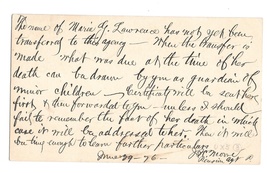 The name of Maria G. Lawrence has not yet been
transferred to this agency — When the transfer is
made what was due at the time of her
death can be drawn by you as guardian of
minor children — Certificate will be sent here
first & then forwarded to you — unless I should
fail to remember the fact of her death in which
case it will be addressed to her. Then it will
be time enough to learn further particulars
June 29 - 76 -
Pension Agt